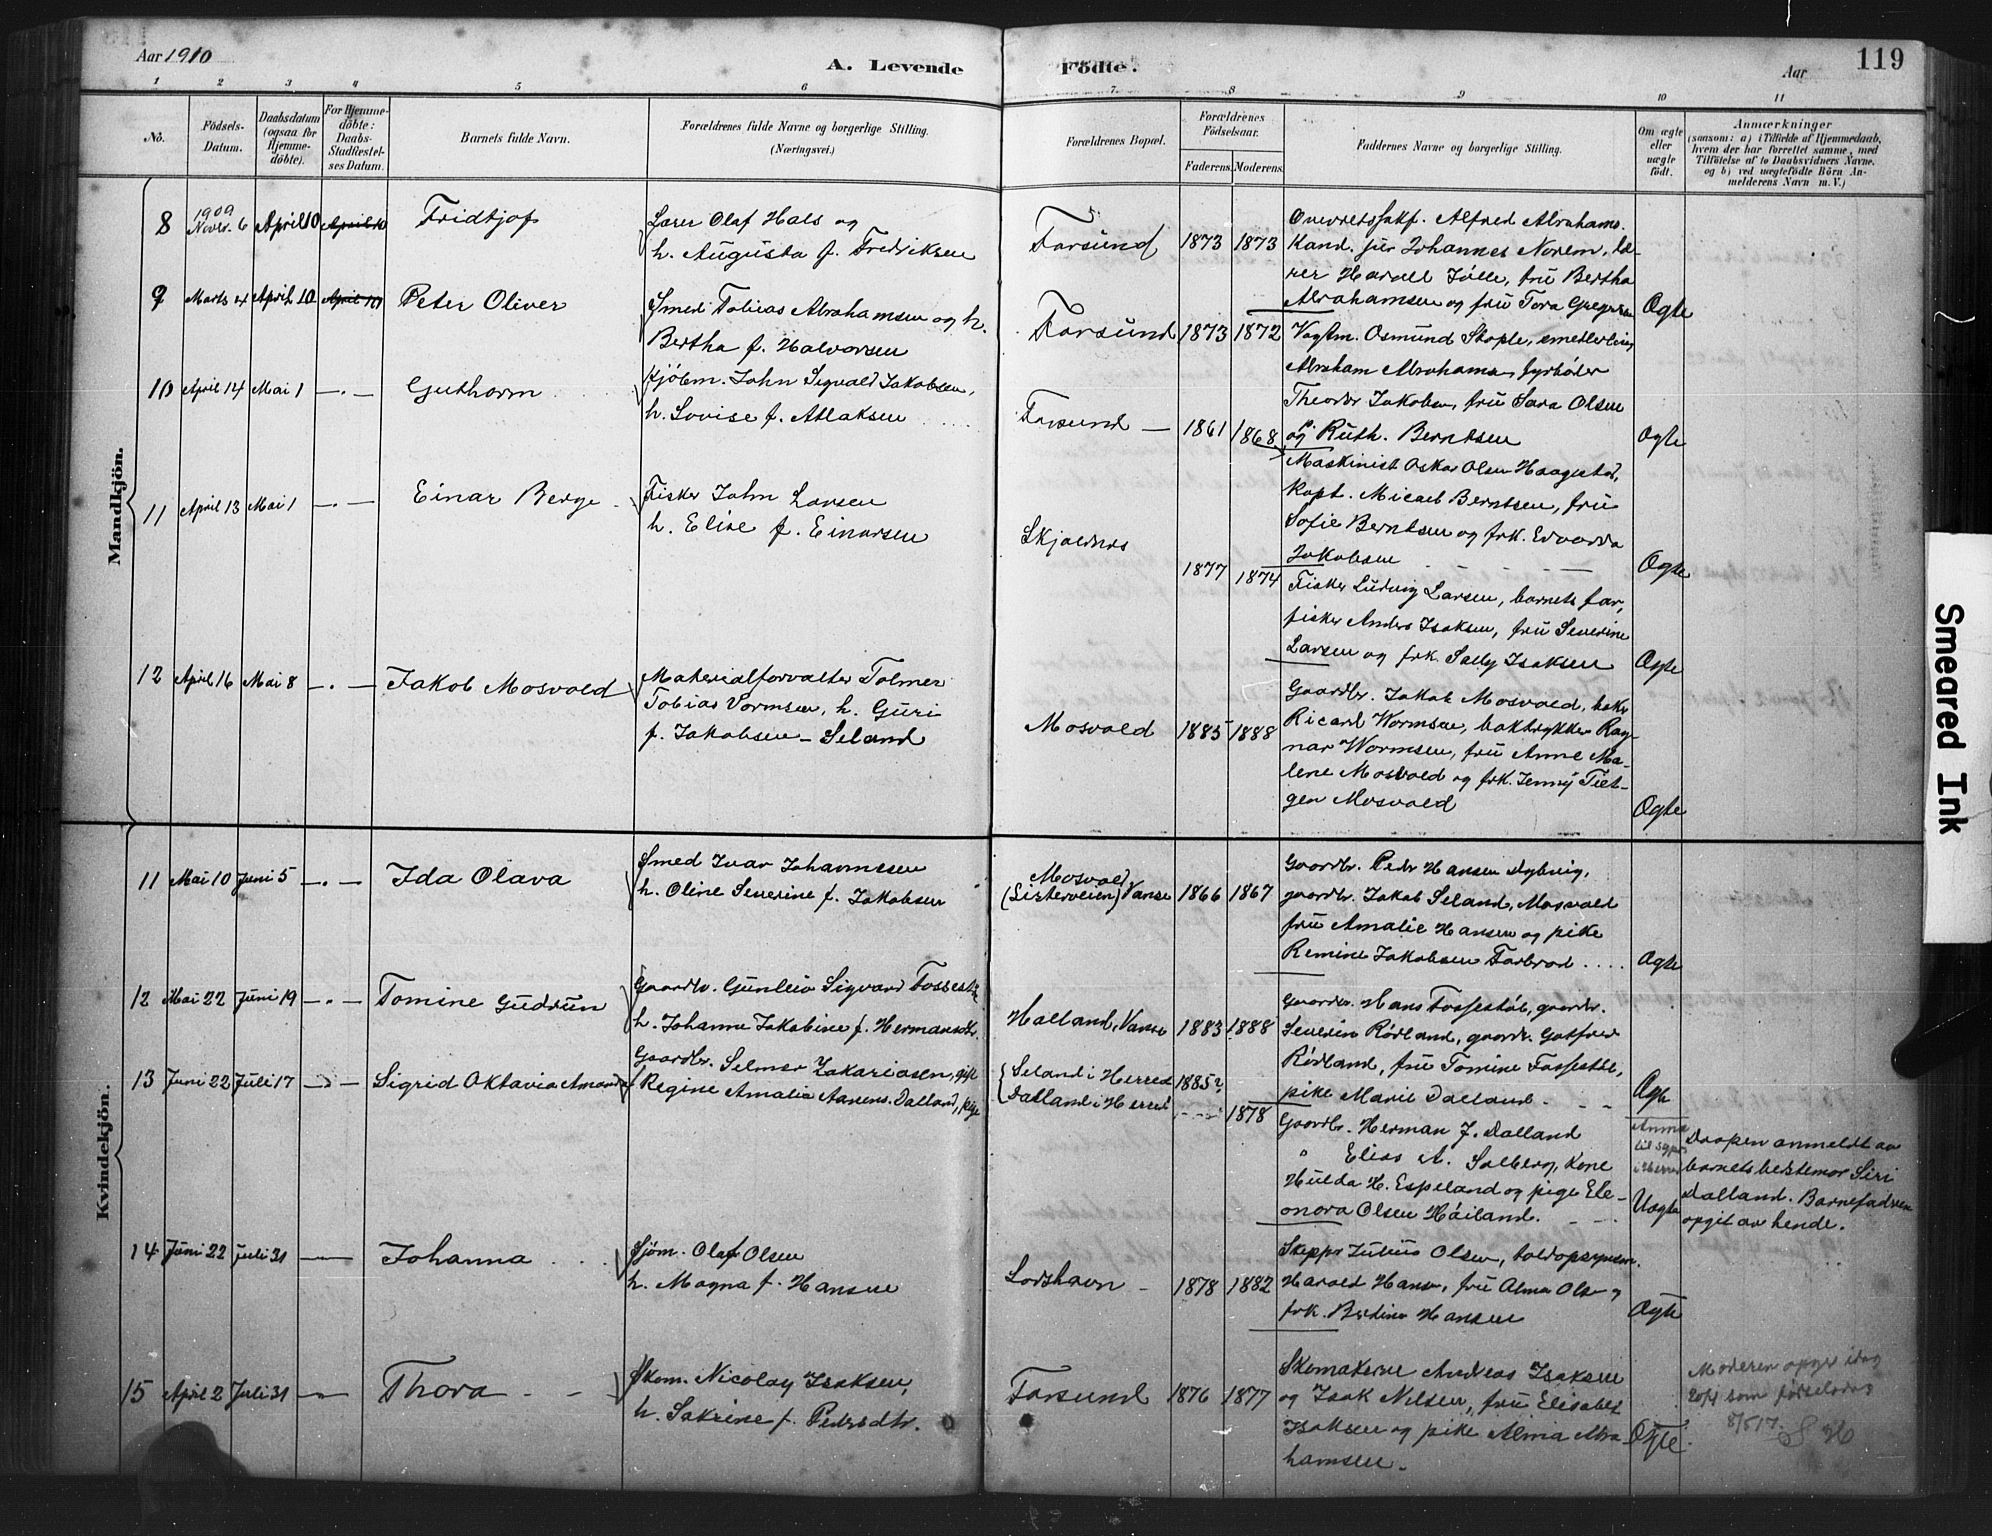 Aar 1910
A. Levende Födte.
Aar
119
1 2 3 4 5 6 7 8 9 10 11
No.
Födsels-Datum.
Daabsdatum (ogsaa for Hjemme-döbte).
For Hjemme-döbte: Daabs-Stadfæstel-ses Datum.
Barnets fulde Navn.
Forældrenes fulde Navne og borgerlige Stilling.
(Næringsvei.)
Forældrenes Bopæl.
Forældrenes Födselsaar.
Faderens. Moderens.
Faddernes Navne og borgerlige Stilling.
Om ægte eller uægte födt.
Anmærkninger
(saasom: a) i Tilfælde af Hjemmedaab,
hvem der har forrettet samme, med
Tilföielse af to Daabsvidners Navne,
og b) ved uægtefödte Börn An-
melderens Navn m. V.)
Mandkjön.
8 1909 Novbr. 6 April 10 April 10 Fridtjof
Lærer Olaf Hals og
h. Augusta f. Fredriksen
Farsund 1873 1873
Overretssakf. Alfred Abrahams.
Kand. jur Johannes Norem, læ-
rer Harall Tölle, fru Bertha
Abrahamsen og fru Tora Gregersen Ægte
9 Marts April 10 April 10 Peter Oliver
Smed Tobias Abrahamsen og h.
Bertha f. Halvorsen
Farsund 1873 1872
Vagtm. Osmund Stople, smedlærling
Abraham Abrahams, fyrböter
Theodor Jakobsen, fru Sara Olsen
og Ruth. Berntsen Ægte
10 April 14 Mai 1 — . — Guthorm
Kjöbm. John Sigvald Jakobsen,
h. Lovise f. Atlaksen
Farsund — 1861 1868
Maskinist Oskar Olsen Haagestad,
Kapt. Micael Berntsen, fru
Sofie Berntsen og frk. Edvarda
Jakobsen Ægte
11 April 13 Mai 1 — . — Einar Berge
Fisker John Larsen
h. Elise f. Einarsen
Skjoldnes 1877 1874
Fisker Ludvig Larsen, barnets far,
fisker Anders Isaksen, fru Severine
Larsen og frk. Sally Isaksen Ægte
12 April 16 Mai 8 — . — Jakob Mosvold
Materialforvalter Tolmer
Tobias Vormsen, h. Guri
f. Jakobsen - Seland
Mosvold 1885 1888
Gaardbr. Jakob Mosvold, baker
Ricard Wormsen, boktrykker Rag-
nar Wormsen, fru Anne Ma-
lene Mosvold og frk. Jenny Tiet-
gen Mosvold Ægte
Kvindekjön.
11 Mai 10 Juni 5 — . — Ida Olava
Smed Ivar Johannessen
h. Oline Severine f. Jakobsen
Mosvold,
(Listerveien) Vanse 1866 1867
Gaardbr. Peder Hansen Dybvig,
gaardbr. Jakob Seland, Mosvold
fru Amalie Hansen og pike
Remine Jakobsen Farbrod .... Ægte
12 Mai 22 Juni 19 — . — Tomine Gudrun
Gaardbr. Gunleiv Sigvard Fossestöl
h. Johanne Jakobine f. Hermansdtr.
Halland, Vanse 1883 1888
Gaardbr. Hans Fossestöl, gaardbr.
Severin Rödland, gaardbr. Gotfred
Rödland, fru Tomine Fossestöl,
pike Marie Dalland. Ægte
13 Juni 22 Juli 17 — . — Sigrid Oktavia Amanda
Gaardbr. Selmer Zakariasen, gift
Regine Amalia Aanens. Dalland, pige
Seland i Herred
Dalland i Herred 1885? 1878
Gaardbr. Herman J. Dalland
" Elias A. Salberg, Kone
Hulda H. Espeland og pige Ele-
onora Olsen Höiland. Uægte
Daapen anmeldt av
barnets bestemor Siri
Dalland. Barnefadren
opgit av hende.
14 Juni 22 Juli 31 — Johanna
Sjöm. Olaf Olsen
h. Magna f. Hansen
Loshavn - 1878 1882
Skipper Julius Olsen, toldopsynsm.
Harald Hansen, fru Alma Olsen og
frk. Bertine Hansen Ægte
15 April 2 Juli 31 — Thora
Skom. Nicolay Isaksen,
h. Sakrine f. Pedersdtr.
Farsund 1876 1877
Skomakerne Andreas Isaksen
og Isak Nilsen, fru Elisabet
Isaksen og pike Alma Abra-
hamsen. Ægte
Moderen opgir idag
20/4 som födselsdag
8/5 17. S H
Smeared Ink